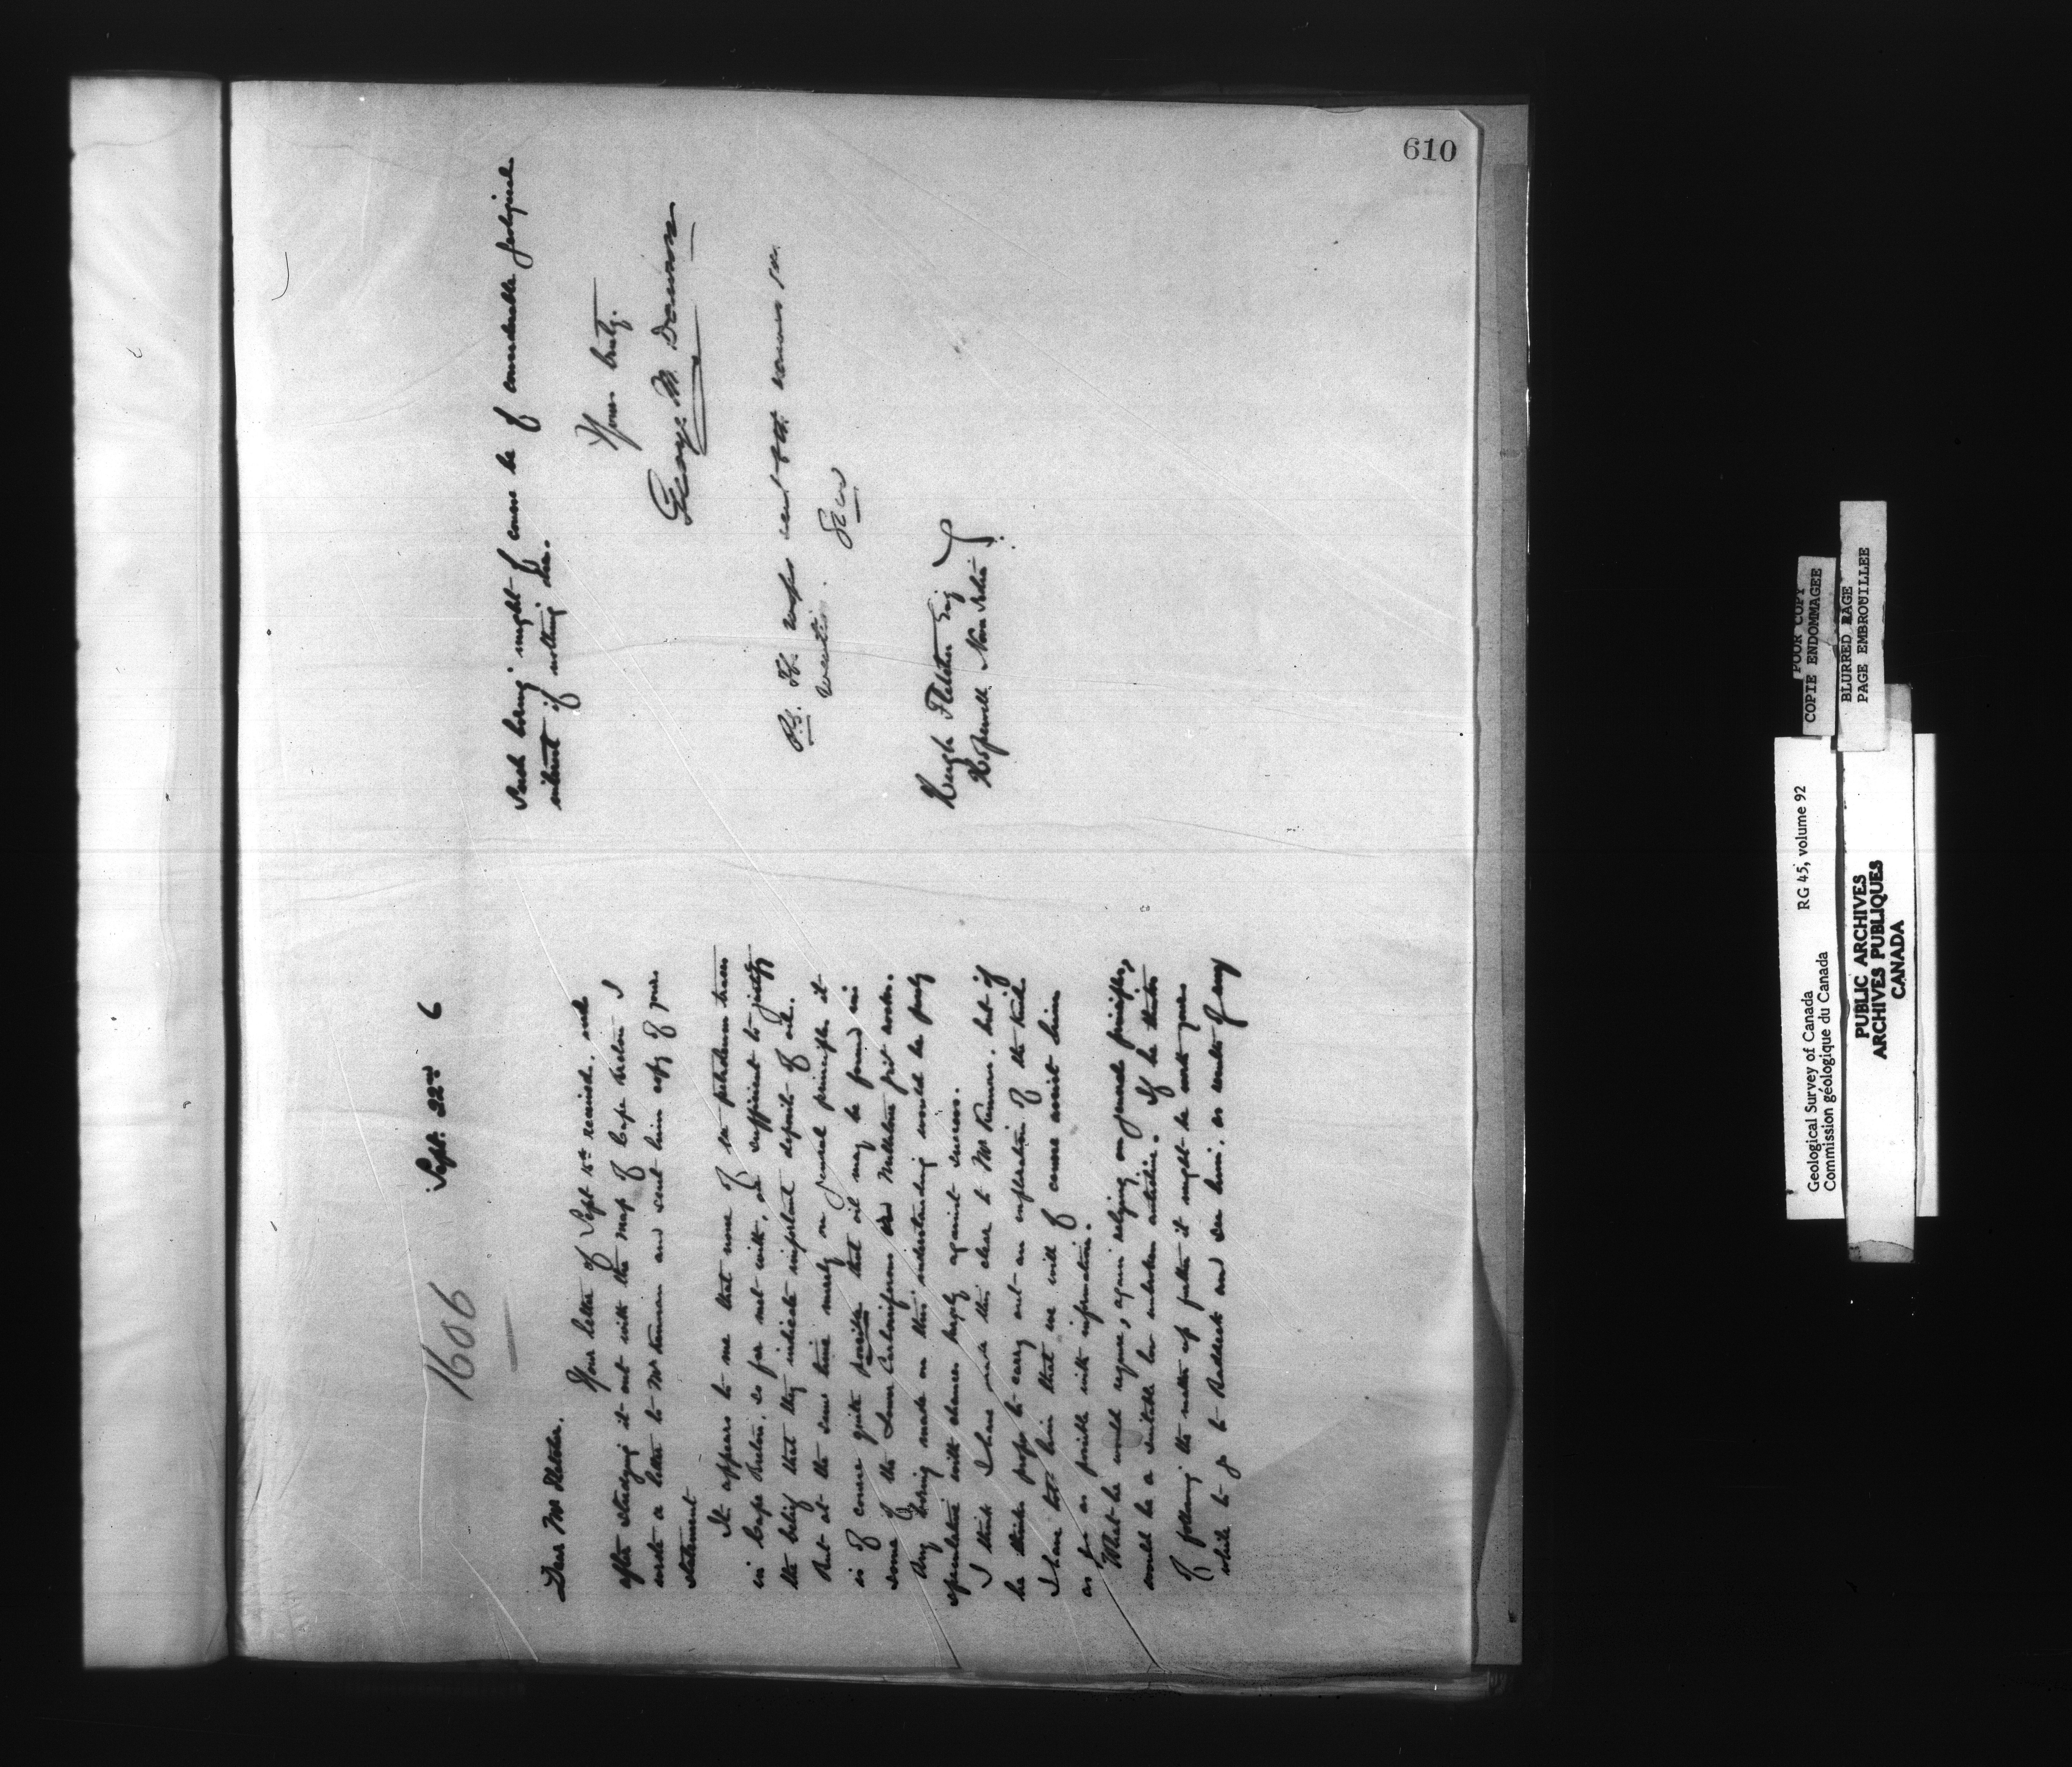 610
1686
Sept. 22nd 6
Dear Mr Fletcher.
Your letter of Sept 15th received. and
after studying it out with the map of Cape Breton I
wrote a letter to Mr Kennan and sent him copy of your
statement
It appears to me that none of the petroleum traces
in Cape Breton, so far met with, are sufficient to justify
the belief that they indicate important deposits of oil.
But at the same time merely on general principles it
is of course quite possible that oil may be found in
some of the Lower Carboniferous and Millstone grit rocks.
Any boring made on this understanding would be purely
speculative with chances largely against success.
I think I have made this clear to Mr Kennan. but if
he thinks proper to carry out an exploration of the kind
I have told him that we will of course assist him
as far as possible with information.
What he would require, again relying on general principles,
would be a suitable low unbroken anticline. If he thinks
of following the matter up further it might be worth your
while to go to Baddeck and see him, as results of any
such boring might of course be of considerable geological
interest if nothing else.
Yours truly.
George M. Dawson
P.S. The maps sent 8th
wanted.
Hugh Fletcher Esq
Hopewell Nova Scotia
POOR COPY
COPIE ENDOMMAGEE
BLURRED PAGE
PAGE EMBROUILLEE
Geological Survey of Canada RG 45, volume 92
Commission géologique du Canada
PUBLIC ARCHIVES
ARCHIVES PUBLIQUES
CANADA